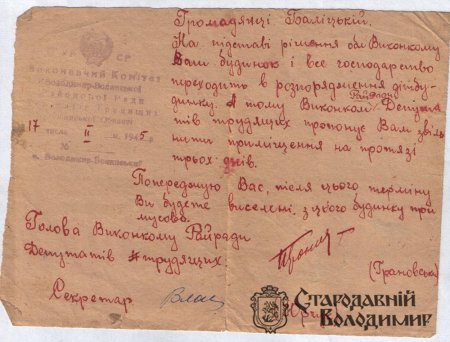 УРСР
Виконавчий Комітет
Володимир-Волинської
Районної Ради
17 числа II м. 1945 р.
№
м. Володимир-Волинський
Громадянці Баліцькій.
На підставі рішення обл Виконкому
Вам будинок і все господарство
переходить в розпорядження дітбу-
динку. А тому Виконком Райради Депута
тів трудящих пропонує Вам звіль
нити приміщення на протязі
трьох днів.
Попереджую Вас, після цього терміну
Ви будете виселені, з цього будинку при
мусово.
Голова Виконкому Райради
Депутатів трудящих
(Грановська)
Секретар
Стародавній
Володимир